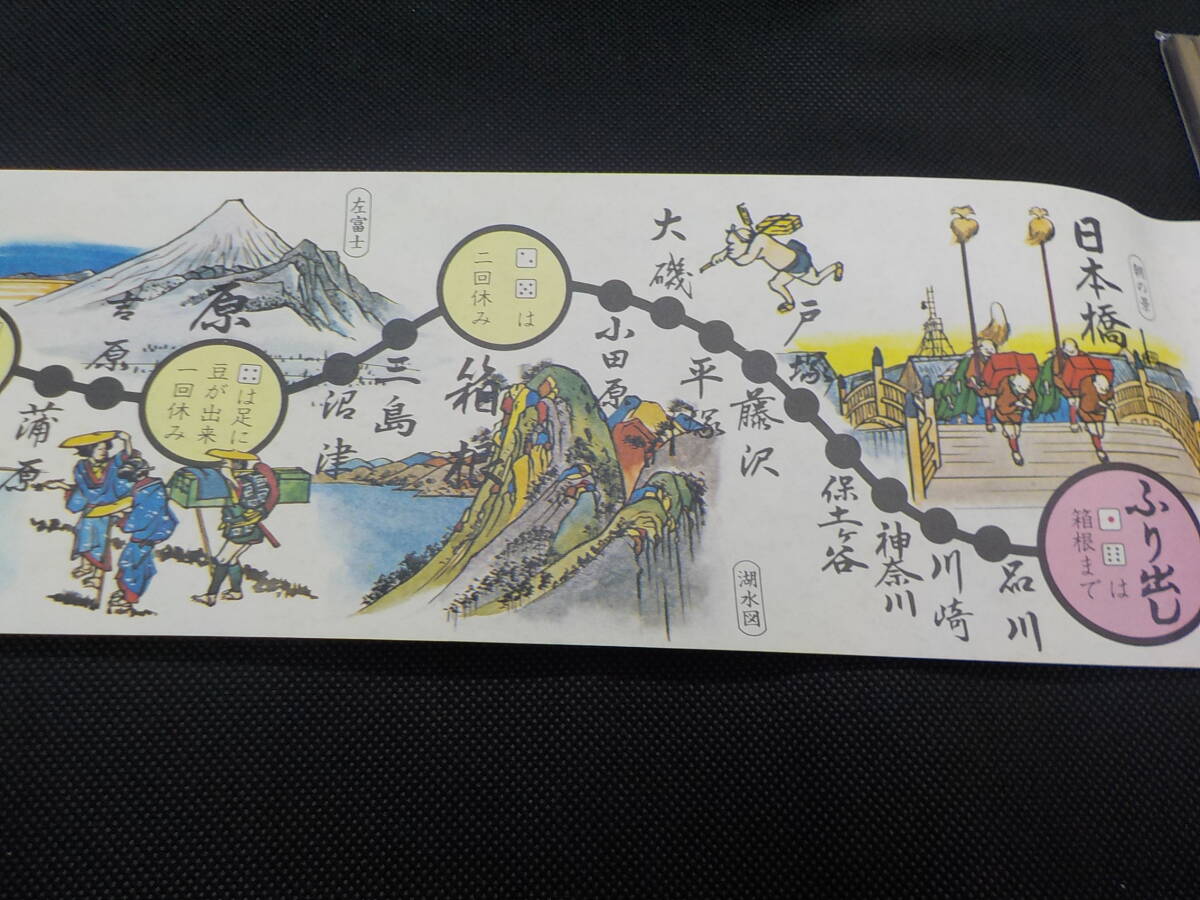 日本橋
朝の景
ふり出し
⚀⚃は
箱根まで
品川
川崎
神奈川
保土ヶ谷
戸塚
藤沢
平塚
大磯
小田原
湖水図
箱根
は
二回休み
三島
沼津
原
左富士
は足に
豆が出来
一回休み
吉原
蒲原